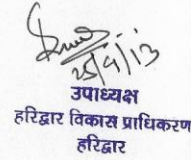 25/4/13
उपाध्यक्ष
हरिद्वार विकास प्राधिकरण
हरिद्वार